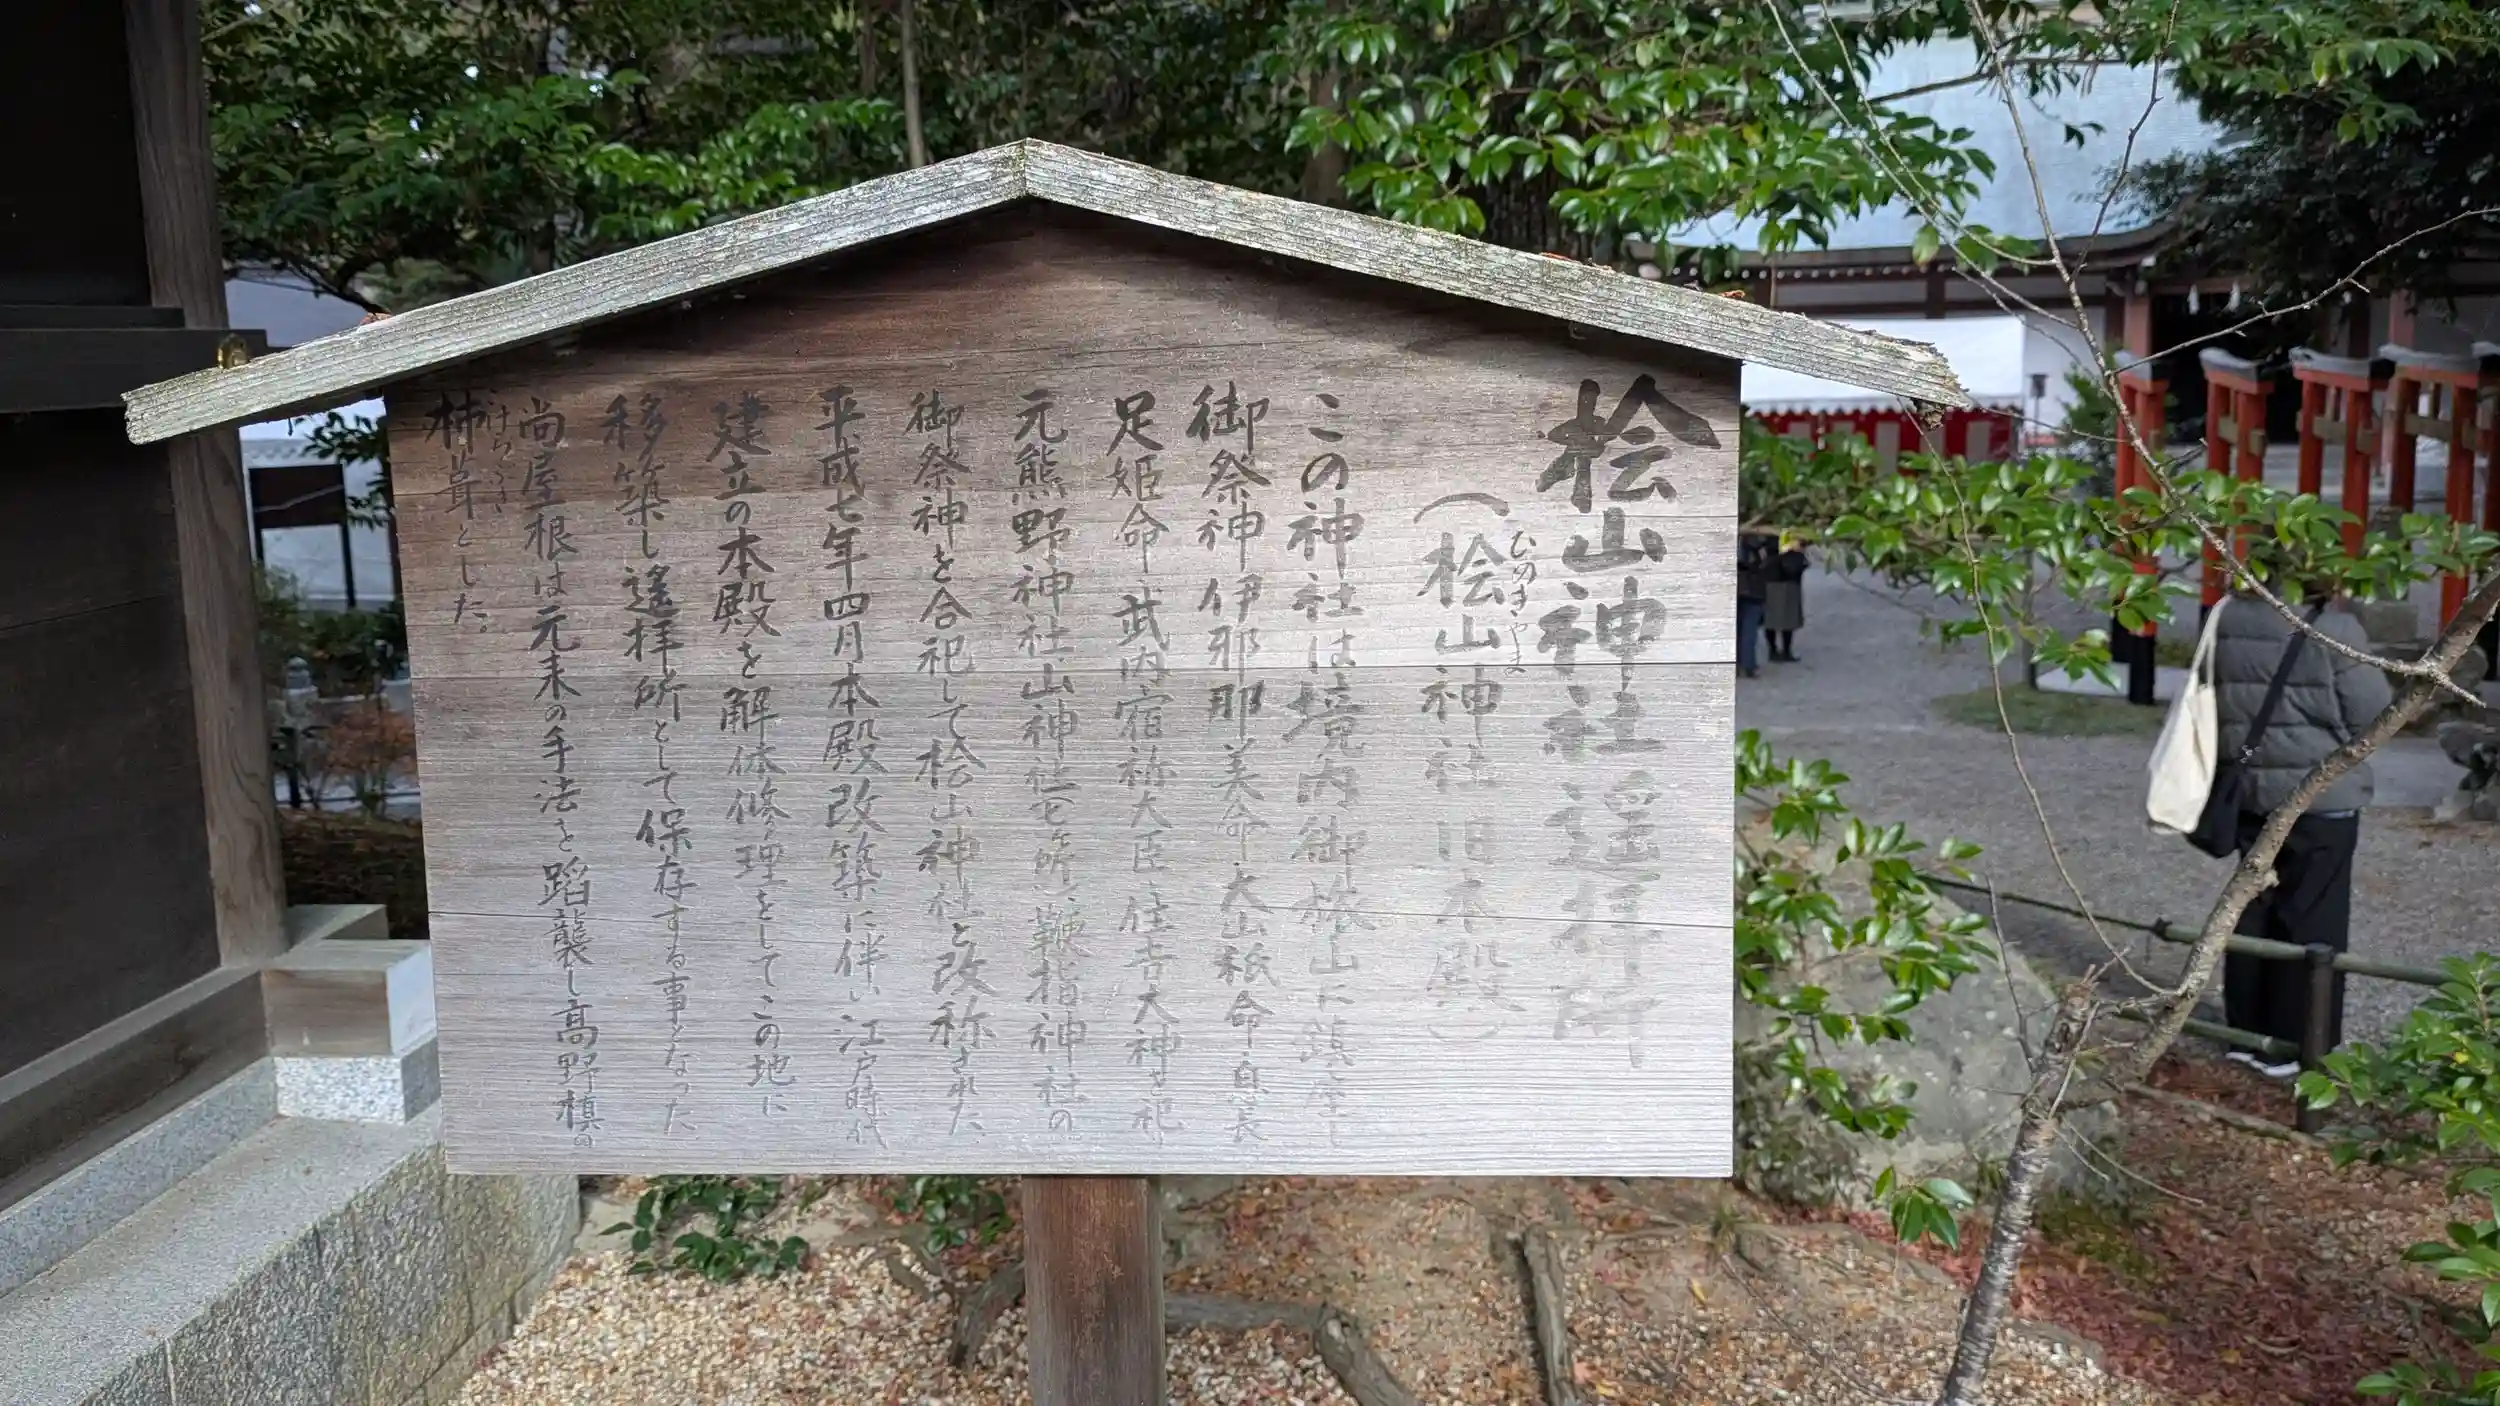 桧山神社遥拝所
(桧山神社旧本殿)
ひのきやま
この神社は境内御旅山に鎮座し
御祭神伊邪那美命大山祇命息長
足姫命武内宿祢大臣住吉大神を祀り
元熊野神社山神社(七ヶ所)鞭指神社の
御祭神を合祀して桧山神社と改称された、
平成七年四月本殿改築に伴い江戸時代
建立の本殿を解体修理をしてこの地に
移築し遙拝所として保存する事となった
尚屋根は元来の手法を踏襲し高野槙の
こけらぶき
杮葺とした。